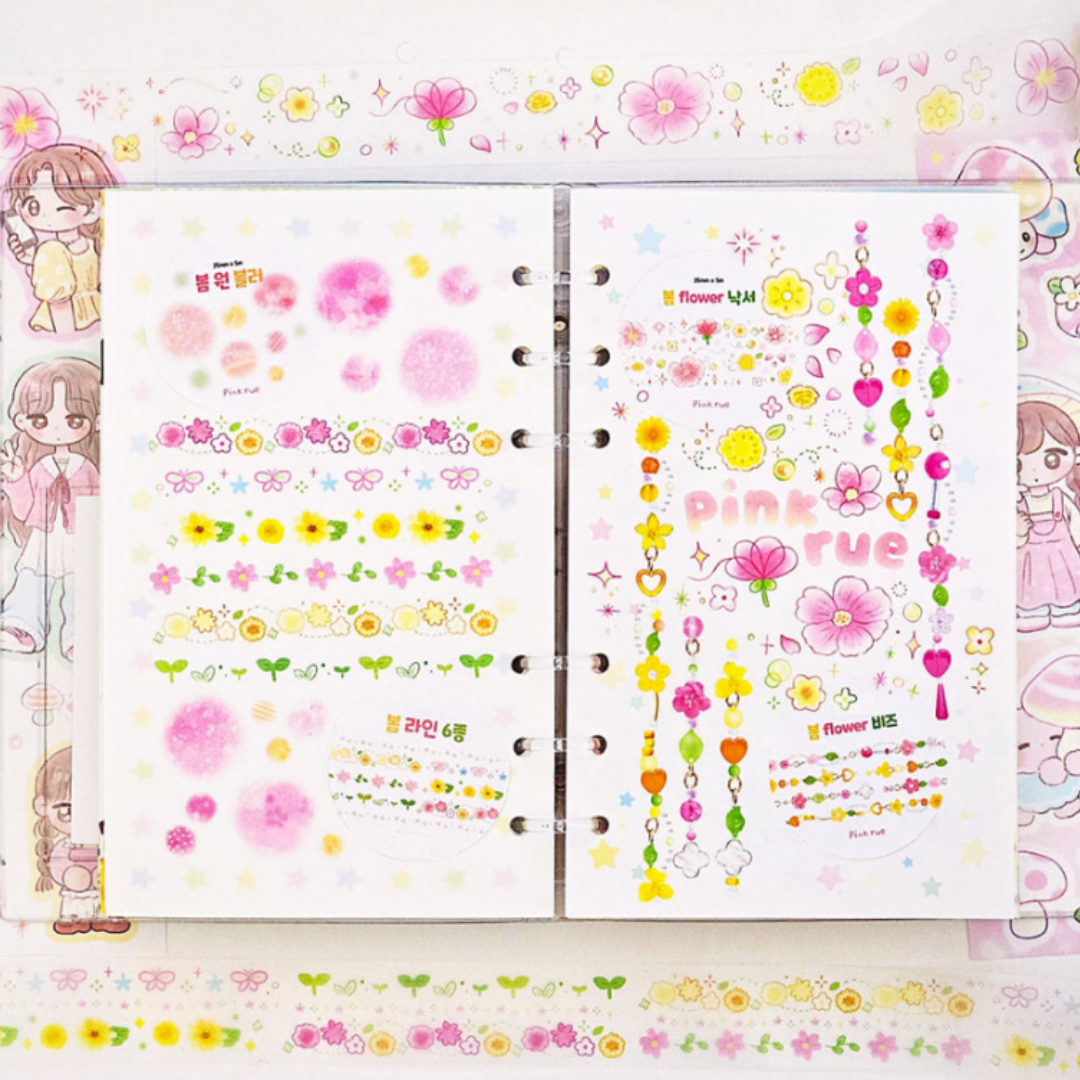 35mm x 5m
봄 원 블러
Pink rue
봄 라인 6종
35mm x 5m
봄 flower 낙서
Pink rue
pink
rue
봄 flower 비즈
Pink rue